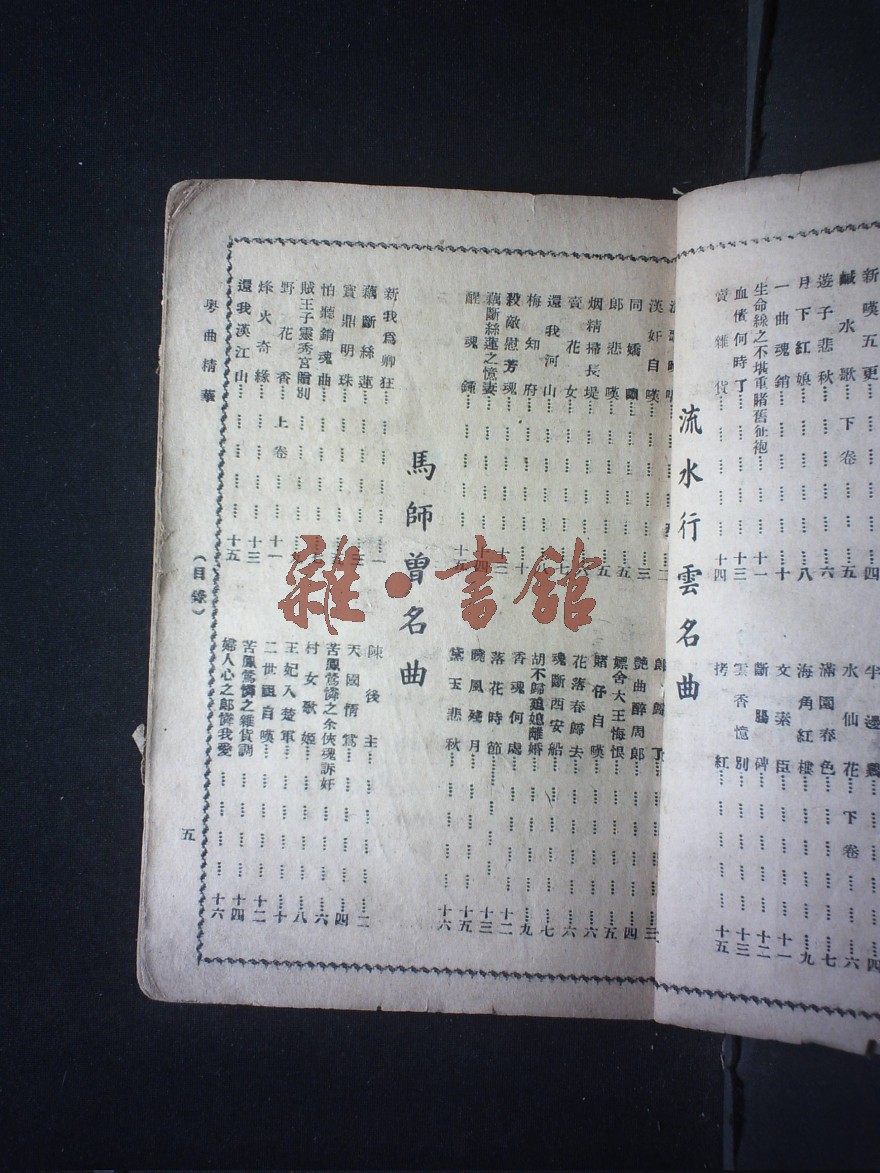 新嘆五更……四
鹹水歌下卷……五
遊子悲秋……六
月下紅娘……八
一曲魂銷……十
生命線之不堪重睹舊征袍……十一
血債何時了……十三
賣雜貨……十四
水仙花下卷……六
滿園春色……七
海角紅樓……九
文素臣……十一
斷腸碑……十二
雲香憶別……十三
拷紅……十五
流水行雲名曲
漢奸自嘆……三
郎悲嘆……五
烟精掃長堤
賣花女……七
還我河山
梅知府……十
殺敵慰芳魂……十三
藕斷絲蓮之憶妻……十四
醒魂鍾……十五
郎歸了……三
艷曲醉周郎……四
嫖舍大王悔恨……五
賭仔自嘆……六
花落春歸去……六
魂斷西安船……七
胡不歸迫媳離婚……九
香魂何處……十二
落花時節……十三
曉風殘月……十五
黛玉悲秋……十六
馬師曾名曲
新我為卿狂……一
藕斷絲蓮……三
寶鼎明珠
怕聽銷魂曲
賊王子靈秀宮贈別
野花香上卷……十一
烽火奇緣……十三
還我漢江山……十五
陳後主……二
天國情鴛……四
苦鳳鶯憐之余俠魂訴奸……六
村女歌姬……八
王妃入楚軍……十
二世祖自嘆……十二
苦鳳鶯憐之雜貨調……十四
婦人心之郎憐我愛……十六
粵曲精華
（目錄）
五
雜·書館